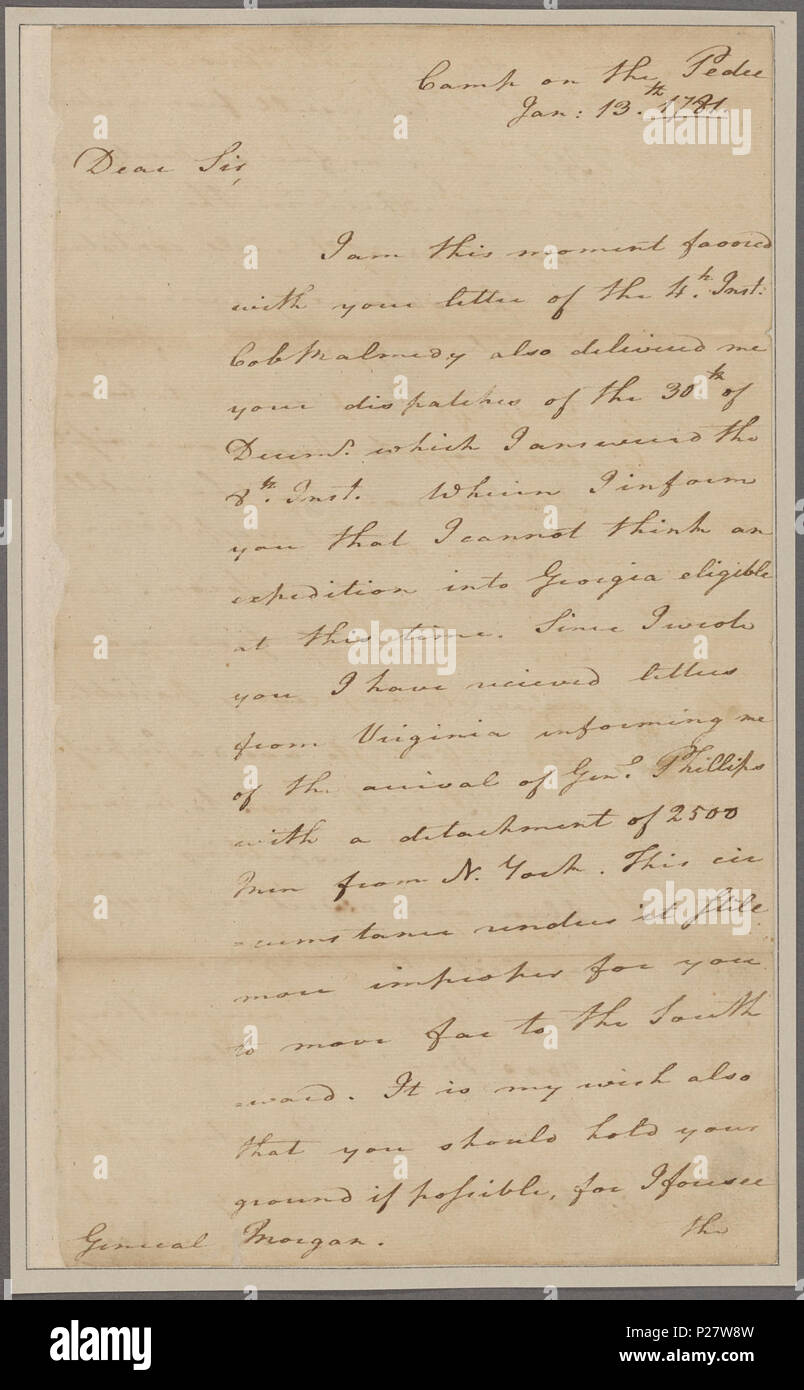 Camp on the Pedee
Jan: 13.th 1781.
Dear Sir,
I am this moment favored
with your letter of the 4.th Inst:
Col. Malmedy also delivered me
your dispatches of the 30th of
Decemr. which I answered the
8th. Inst. Wherein I inform
you that I cannot think an
expedition into Georgia eligible
at this time. Since I wrote
you I have recieved letters
from Virginia informing me
of the arrival of Genl. Phillips
with a detachment of 2500
Men from N. York. This cir
=cumstance renders it still
more improper for you
to move far to the South
=ward. It is my wish also
that you should hold your
ground if possible, for I forsee
the
General Morgan.
alamy
Image ID: P27W8W
www.alamy.com